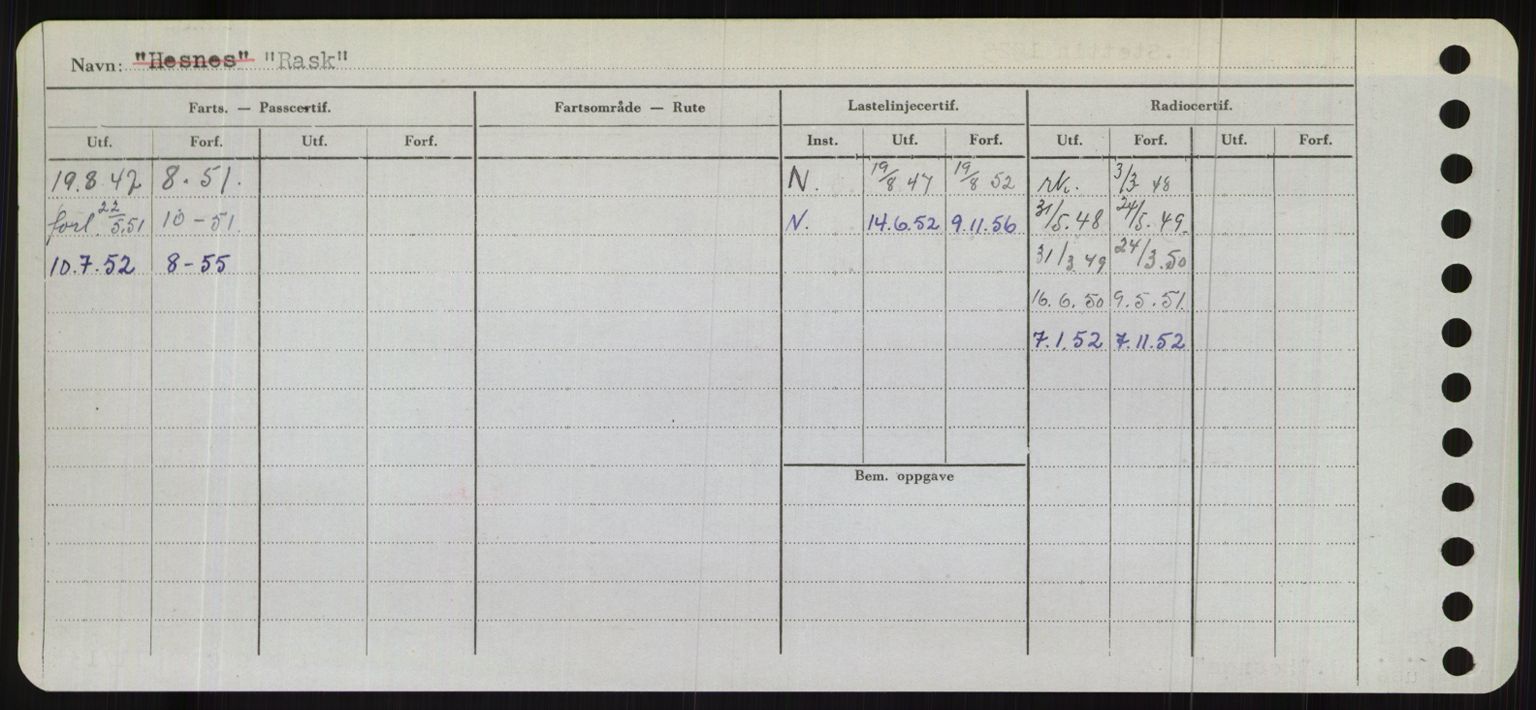 Navn: "Hesnes" "Rask"
Farts. — Passcertif. Fartsområde — Rute Lastelinjecertif. Radiocertif.
Utf. Forf. Utf. Forf. Inst. Utf. Forf. Utf. Forf. Utf. Forf.
19.8.47 8.51. N. 19/8 47 19/8 52 rk. 3/3 48
forl. 22/5.51 10-51. N. 14.6.52 9.11.56 31/5.48 24/5.49.
10.7.52 8-55 31/3 49 24/3.50
16.6.50 9.5.51.
7.1.52 7.11.52
Bem. oppgave